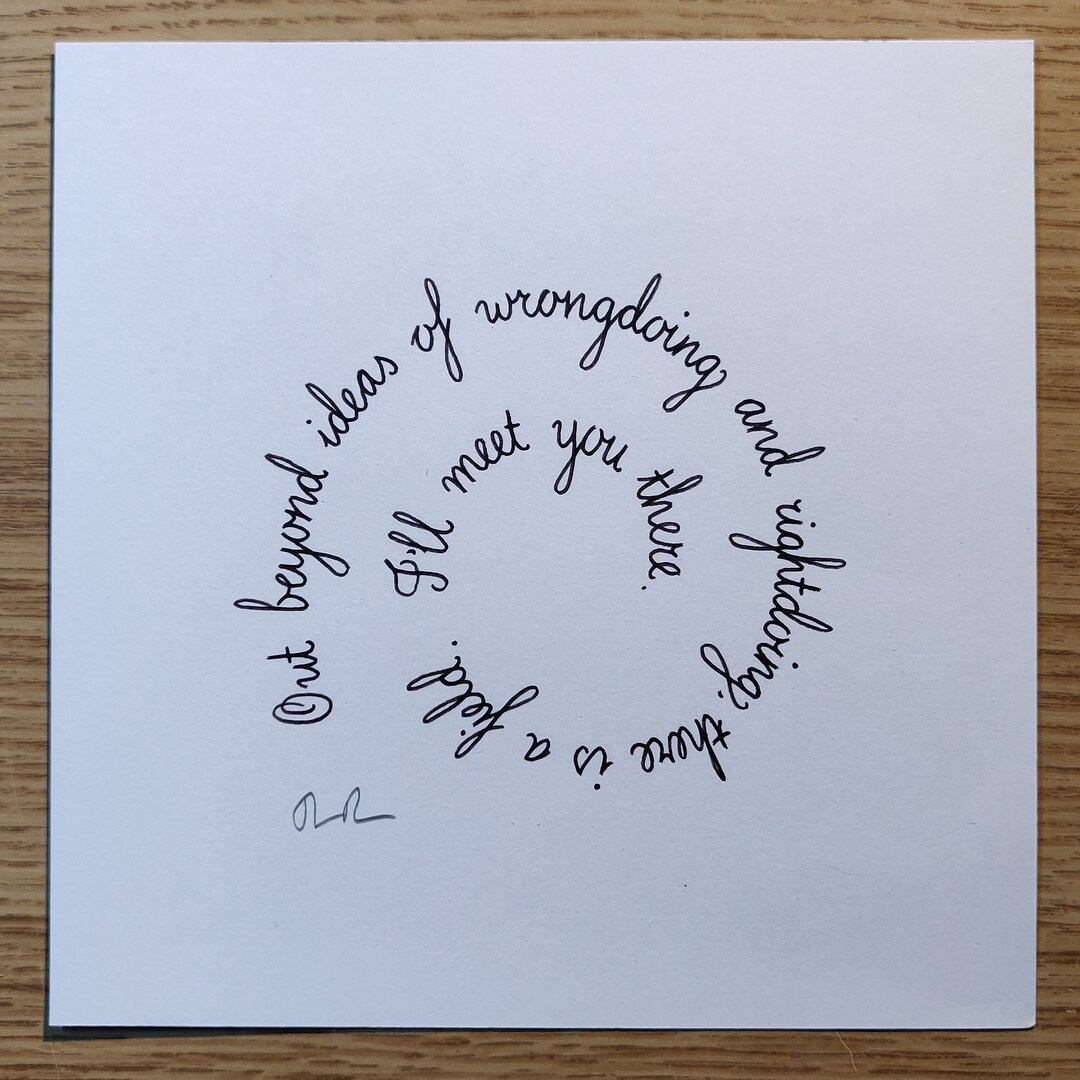 Out beyond ideas of wrongdoing and rightdoing there is a field. I'll meet you there.